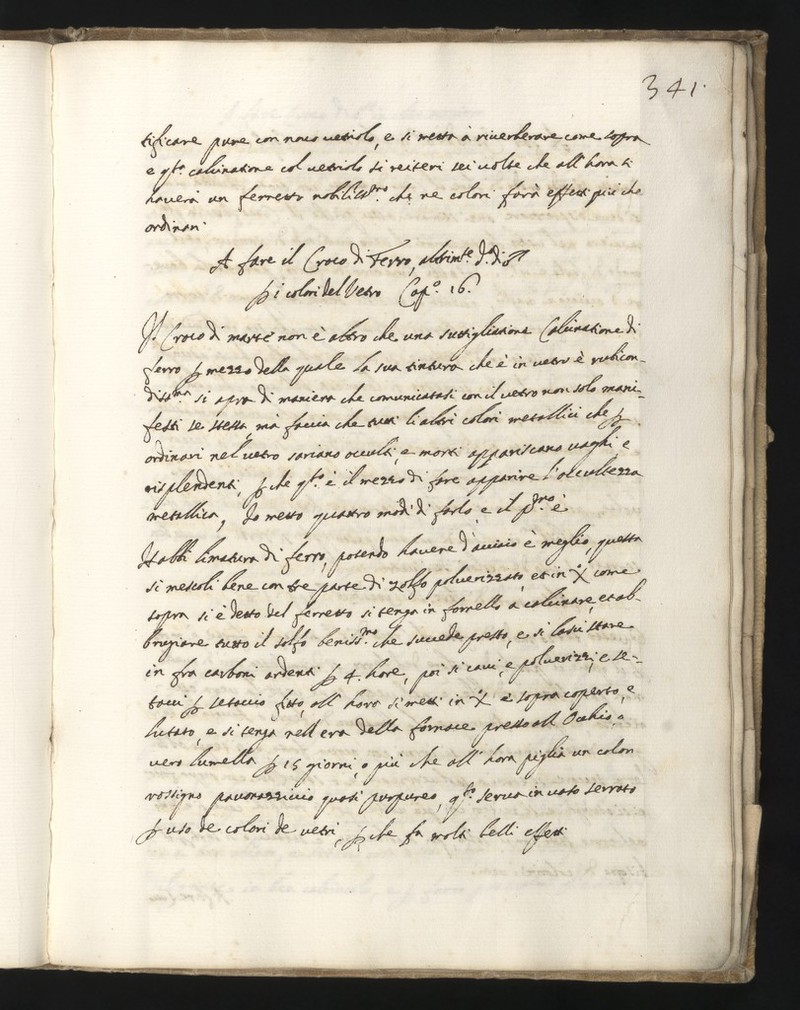 341.
tificare pure con novo vetriolo, e si metta à riverberare come sopra
e q.ta calcinatione col vetriolo si reiteri sei volte che all'hora si
haverà un ferretto nobiliss.mo che ne colori farà effetti più che
ordinari
A fare il Croco di Ferro, altrim.te d.o di ♂
ꝑ i colori del Vetro Cap.o 16.
Il Croco di marte non è altro che una sottigliatione Calcinatione di
ferro ꝑ mezzo della quale la sua tintura che è in vetro è rubicon-
diss.ma si apra di maniera che comunicatasi con il vetro non solo mani-
festi se stessa, mà faccia che tutti li altri colori metallici che ꝑ
ordinari nel vetro sariano occulti, e morti appariscano vaghi, e
risplendenti, ꝑ che q.to è il mezzo di fare apparire l'occultezza
metallica, Io metto quattro modi di farlo, e il p.mo è
Habbi limatura di ferro, potendo havere d'acciaio è meglio, questa
si mescoli bene con tre parte di zolfo polverizzato, et in come
sopra si è detto del ferretto si tenga in fornello a calcinare, et ab-
brugiare tutto il solfo beniss.mo che succede presto, e si lasci stare
in fra carboni ardenti ꝑ 4. hore, poi si cavi, e polverizzi, e se-
tacci ꝑ setaccio fitto, all'hora si metti in e sopra coperto, e
lutato, e si tenga nell era della fornace presso all Occhio, o
vero lumella ꝑ 15 giorni, o più che all'hora piglia un colore
rossigno pavonazziccio quasi purpureo, q.to serva in vaso serrato
ꝑ uso de colori de vetri, ꝑ che fa molti belli effetti